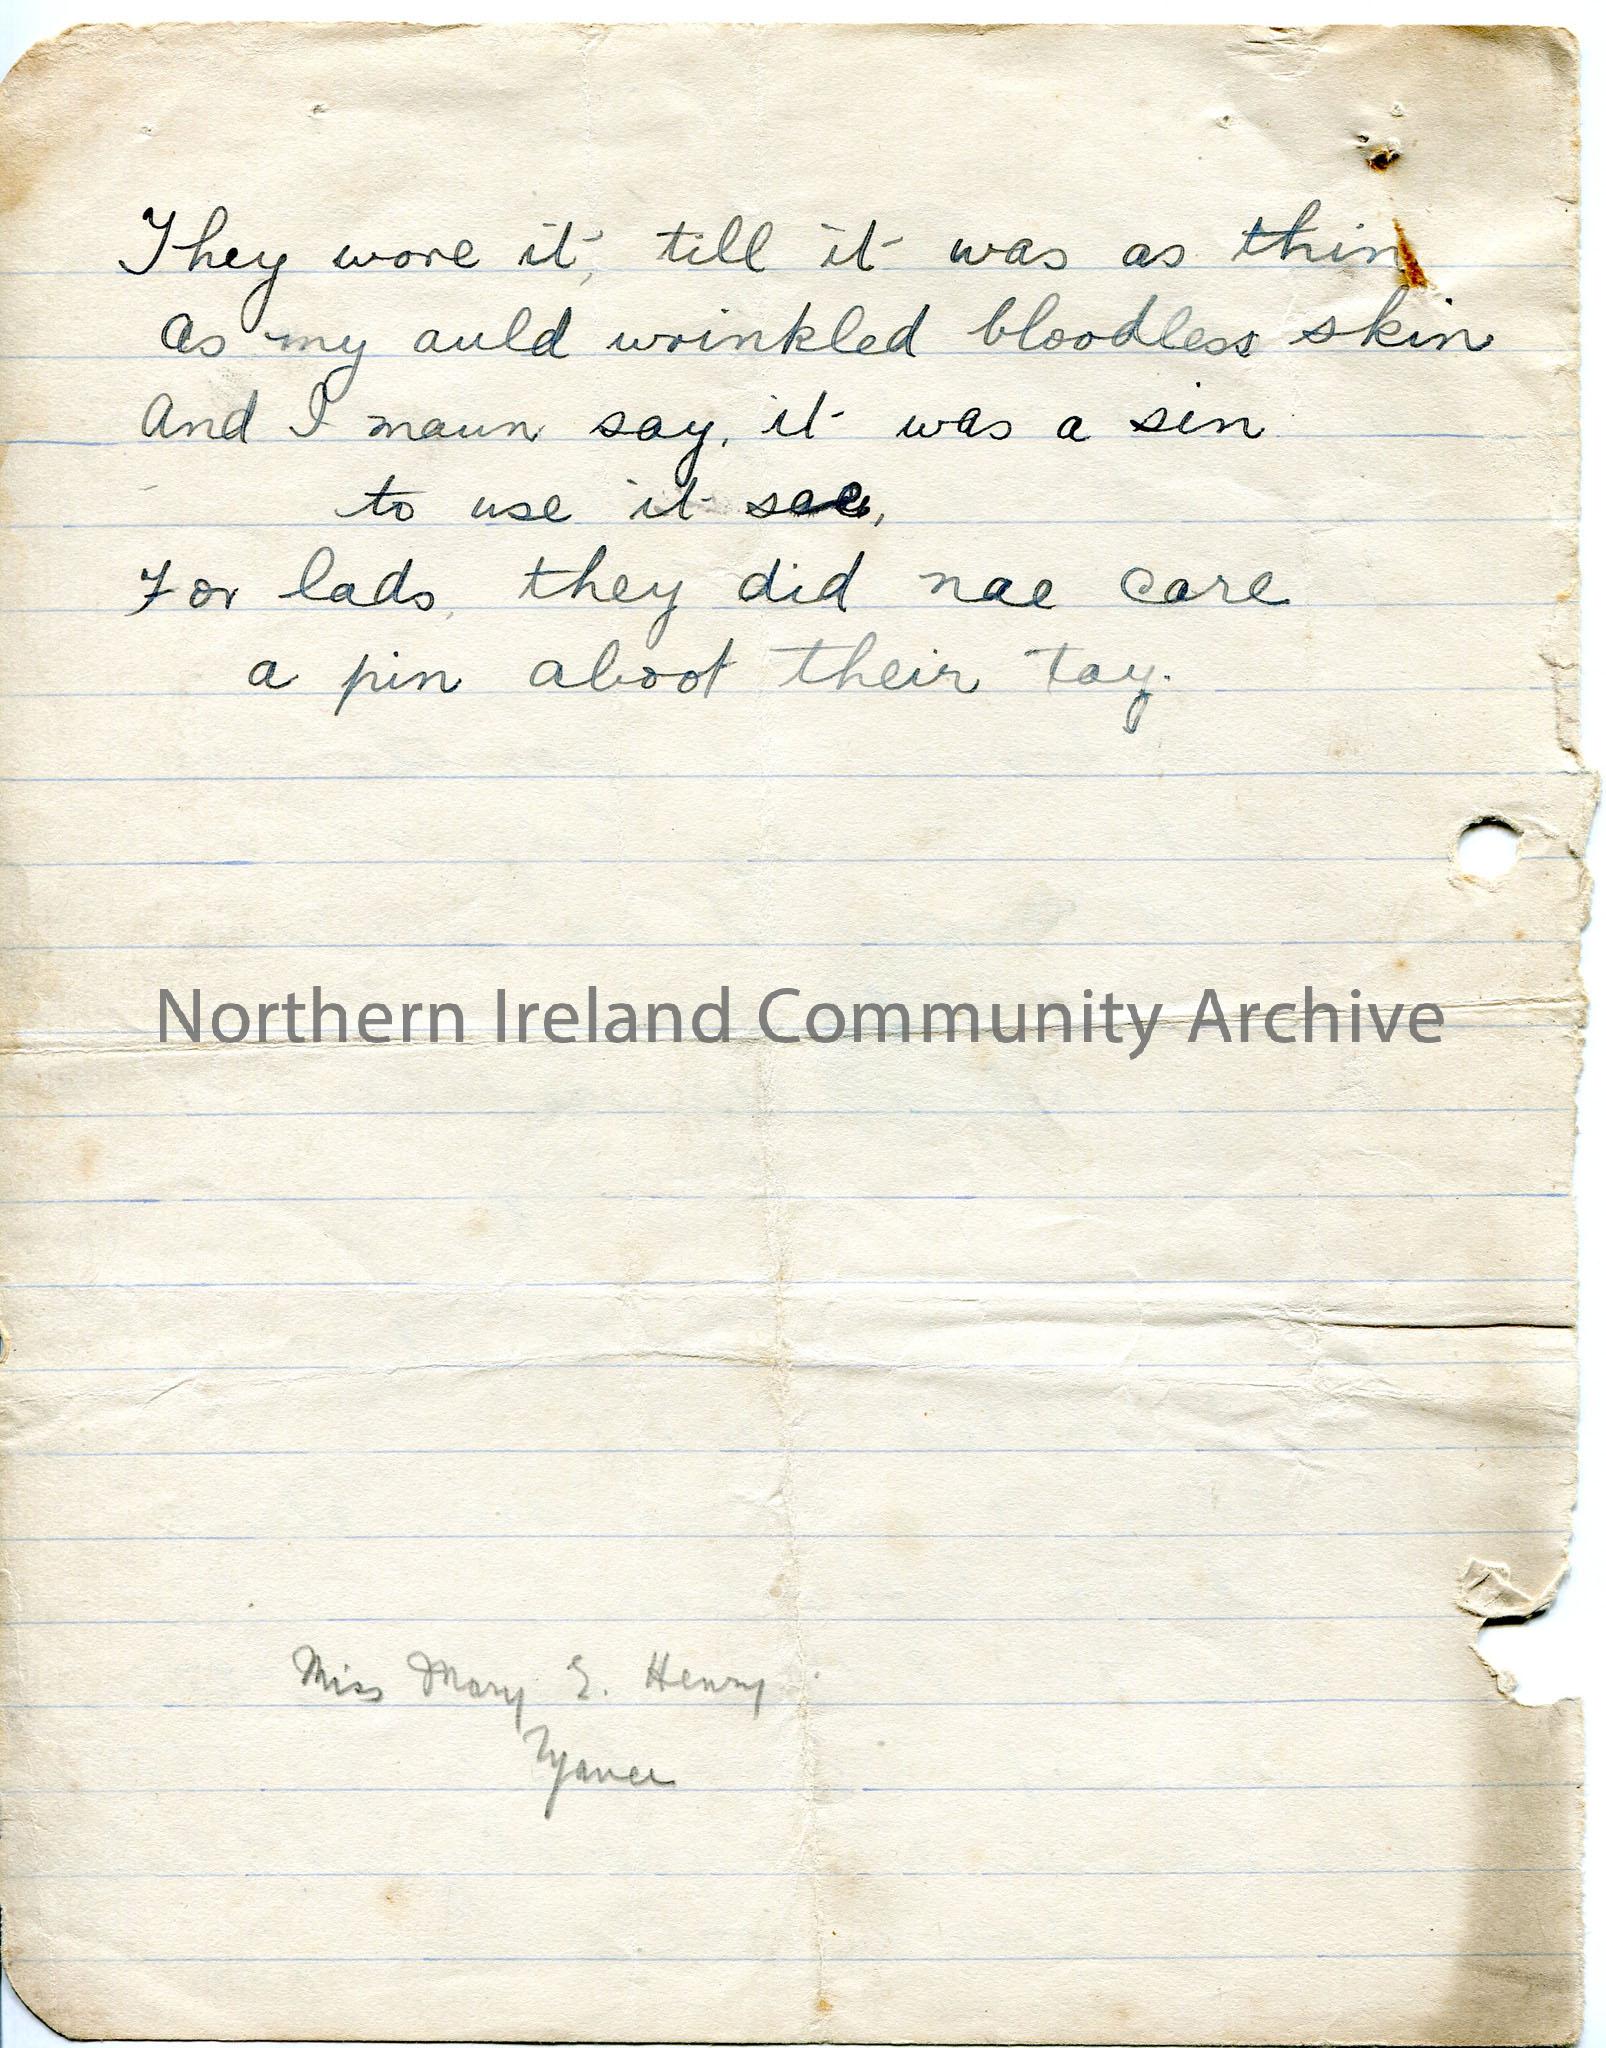 They wore it, till it was as thin
As my auld wrinkled bloodless skin
And I maun say, it was a sin
to use it sae,
For lads, they did nae care
a pin aboot their tay.
Northern Ireland Community Archive
Miss Mary E. Henry